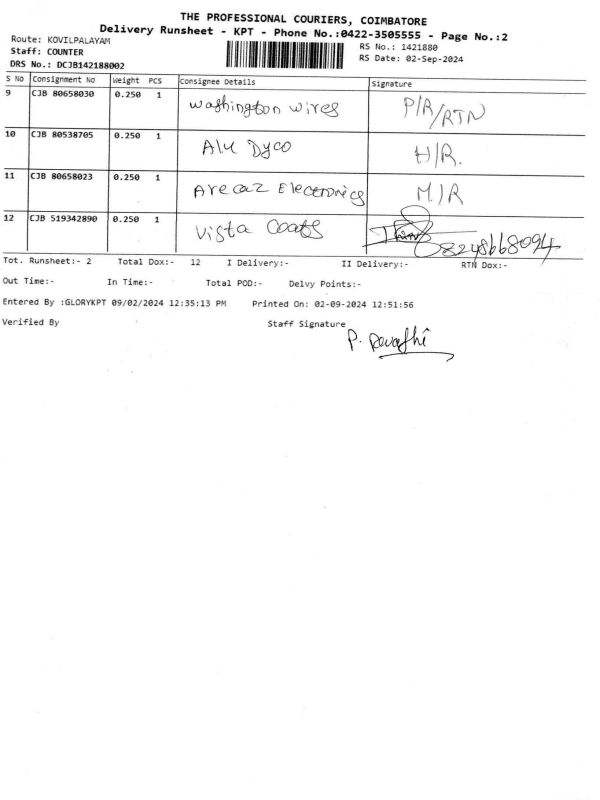 THE PROFESSIONAL COURIERS, COIMBATORE
Delivery Runsheet - KPT - Phone No.:0422-3505555 - Page No.:2
Route: KOVILPALAYAM
RS No.: 1421880
Staff: COUNTER
RS Date: 02-Sep-2024
DRS No.: DCJB142188002
S No Consignment No Weight PCS Consignee Details Signature
9 CJB 80658030 0.250 1 Washington wires P/R/RTN
10 CJB 80538705 0.250 1 Alu Dyco H/R.
11 CJB 80658023 0.250 1 Arecaz Electronics M/R
12 CJB 519342890 0.250 1 Vista Coats
Tot. Runsheet:- 2 Total Dox:- 12 I Delivery:- II Delivery:- RTN Dox:-
Out Time:- In Time:- Total POD:- Delvy Points:-
Entered By :GLORYKPT 09/02/2024 12:35:13 PM Printed On: 02-09-2024 12:51:56
Verified By Staff Signature
P.